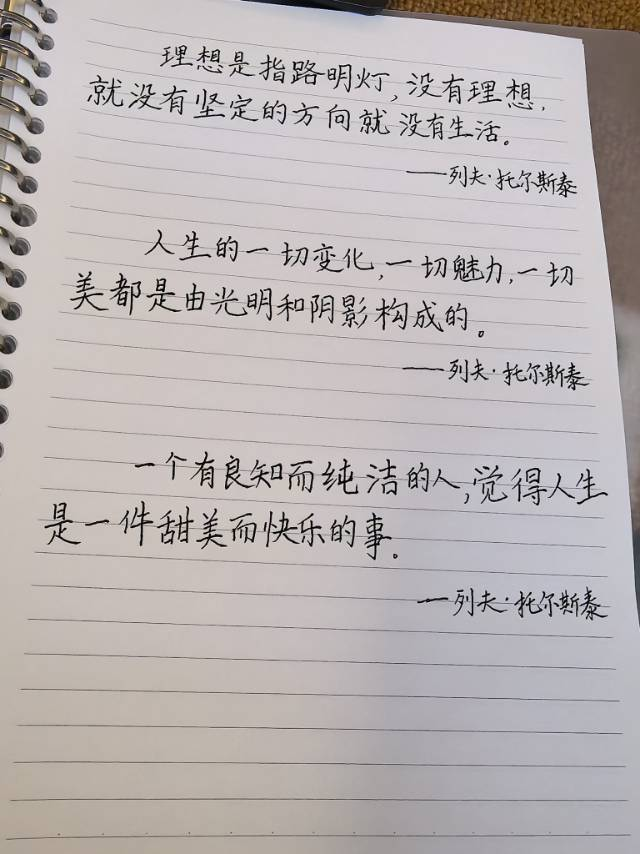 理想是指路明灯,没有理想,
就没有坚定的方向就没有生活。
——列夫·托尔斯泰
人生的一切变化,一切魅力,一切
美都是由光明和阴影构成的。
——列夫·托尔斯泰
一个有良知而纯洁的人,觉得人生
是一件甜美而快乐的事。
—列夫·托尔斯泰